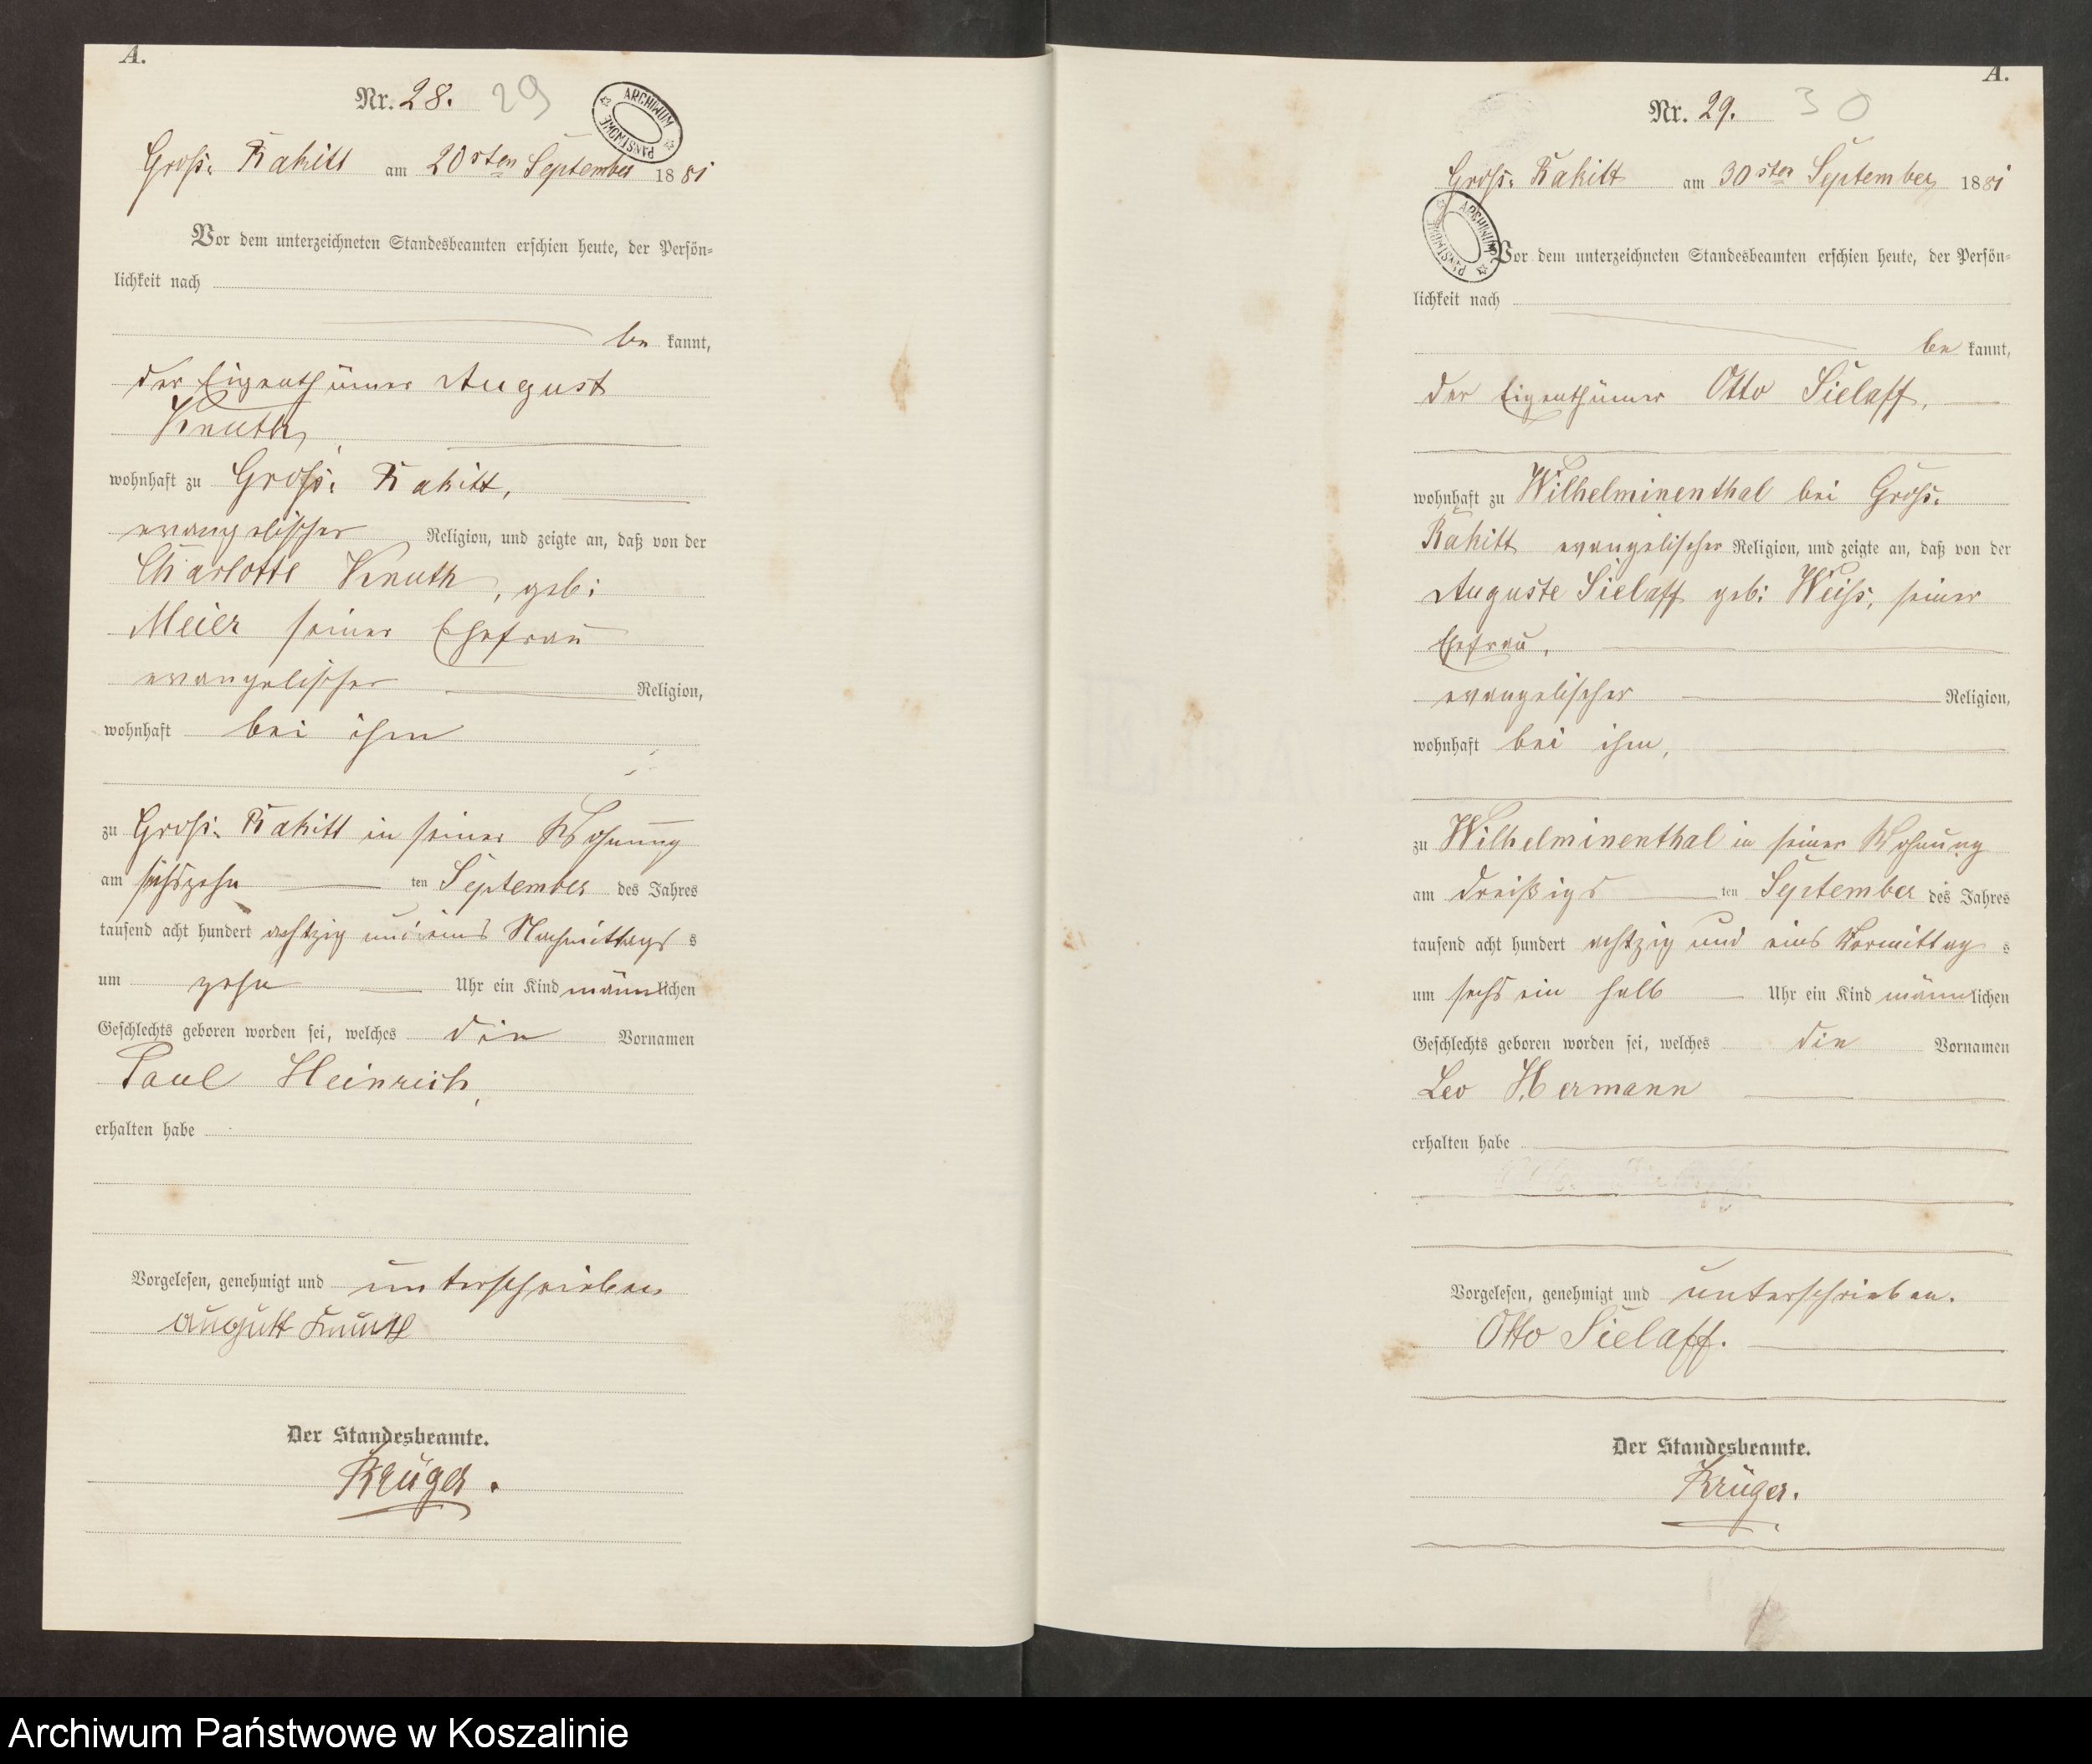 A.
Nr. 28. 29
ARCHIWUM PAŃSTWOWE
Gross-Rakitt am 20sten September 1881
Vor dem unterzeichneten Standesbeamten erschien heute, der Persön-
lichkeit nach
be kannt,
der Eigenthümer August
Knuth,
wohnhaft zu Gross-Rakitt,
evangelischer Religion, und zeigte an, daß von der
Charlotte Knuth, geb:
Meier seiner Ehefrau
evangelischer Religion,
wohnhaft bei ihm
zu Gross-Rakitt in seiner Wohnung
am sechszehn ten September des Jahres
tausend acht hundert achtzig und eins Nachmittags s
um zehn Uhr ein Kind männlichen
Geschlechts geboren worden sei, welches die Vornamen
Paul Heinrich,
erhalten habe
Vorgelesen, genehmigt und unterschrieben
August Knuth
Der Standesbeamte.
Krüger.
A.
Nr. 29. 30
Gross-Rakitt am 30sten September 1881
ARCHIWUM PAŃSTWOWE
Vor dem unterzeichneten Standesbeamten erschien heute, der Persön-
lichkeit nach
be kannt,
der Eigenthümer Otto Sielaff,
wohnhaft zu Wilhelminenthal bei Gross-
Rakitt evangelischer Religion, und zeigte an, daß von der
Auguste Sielaff geb: Weiss, seiner
Ehefrau,
evangelischer Religion,
wohnhaft bei ihm,
zu Wilhelminenthal in seiner Wohnung
am dreißigs ten September des Jahres
tausend acht hundert achtzig und eins Vormittag s
um sechs ein halb Uhr ein Kind männlichen
Geschlechts geboren worden sei, welches die Vornamen
Leo Hermann
erhalten habe
Vorgelesen, genehmigt und unterschrieben.
Otto Sielaff.
Der Standesbeamte.
Krüger.
Archiwum Państwowe w Koszalinie